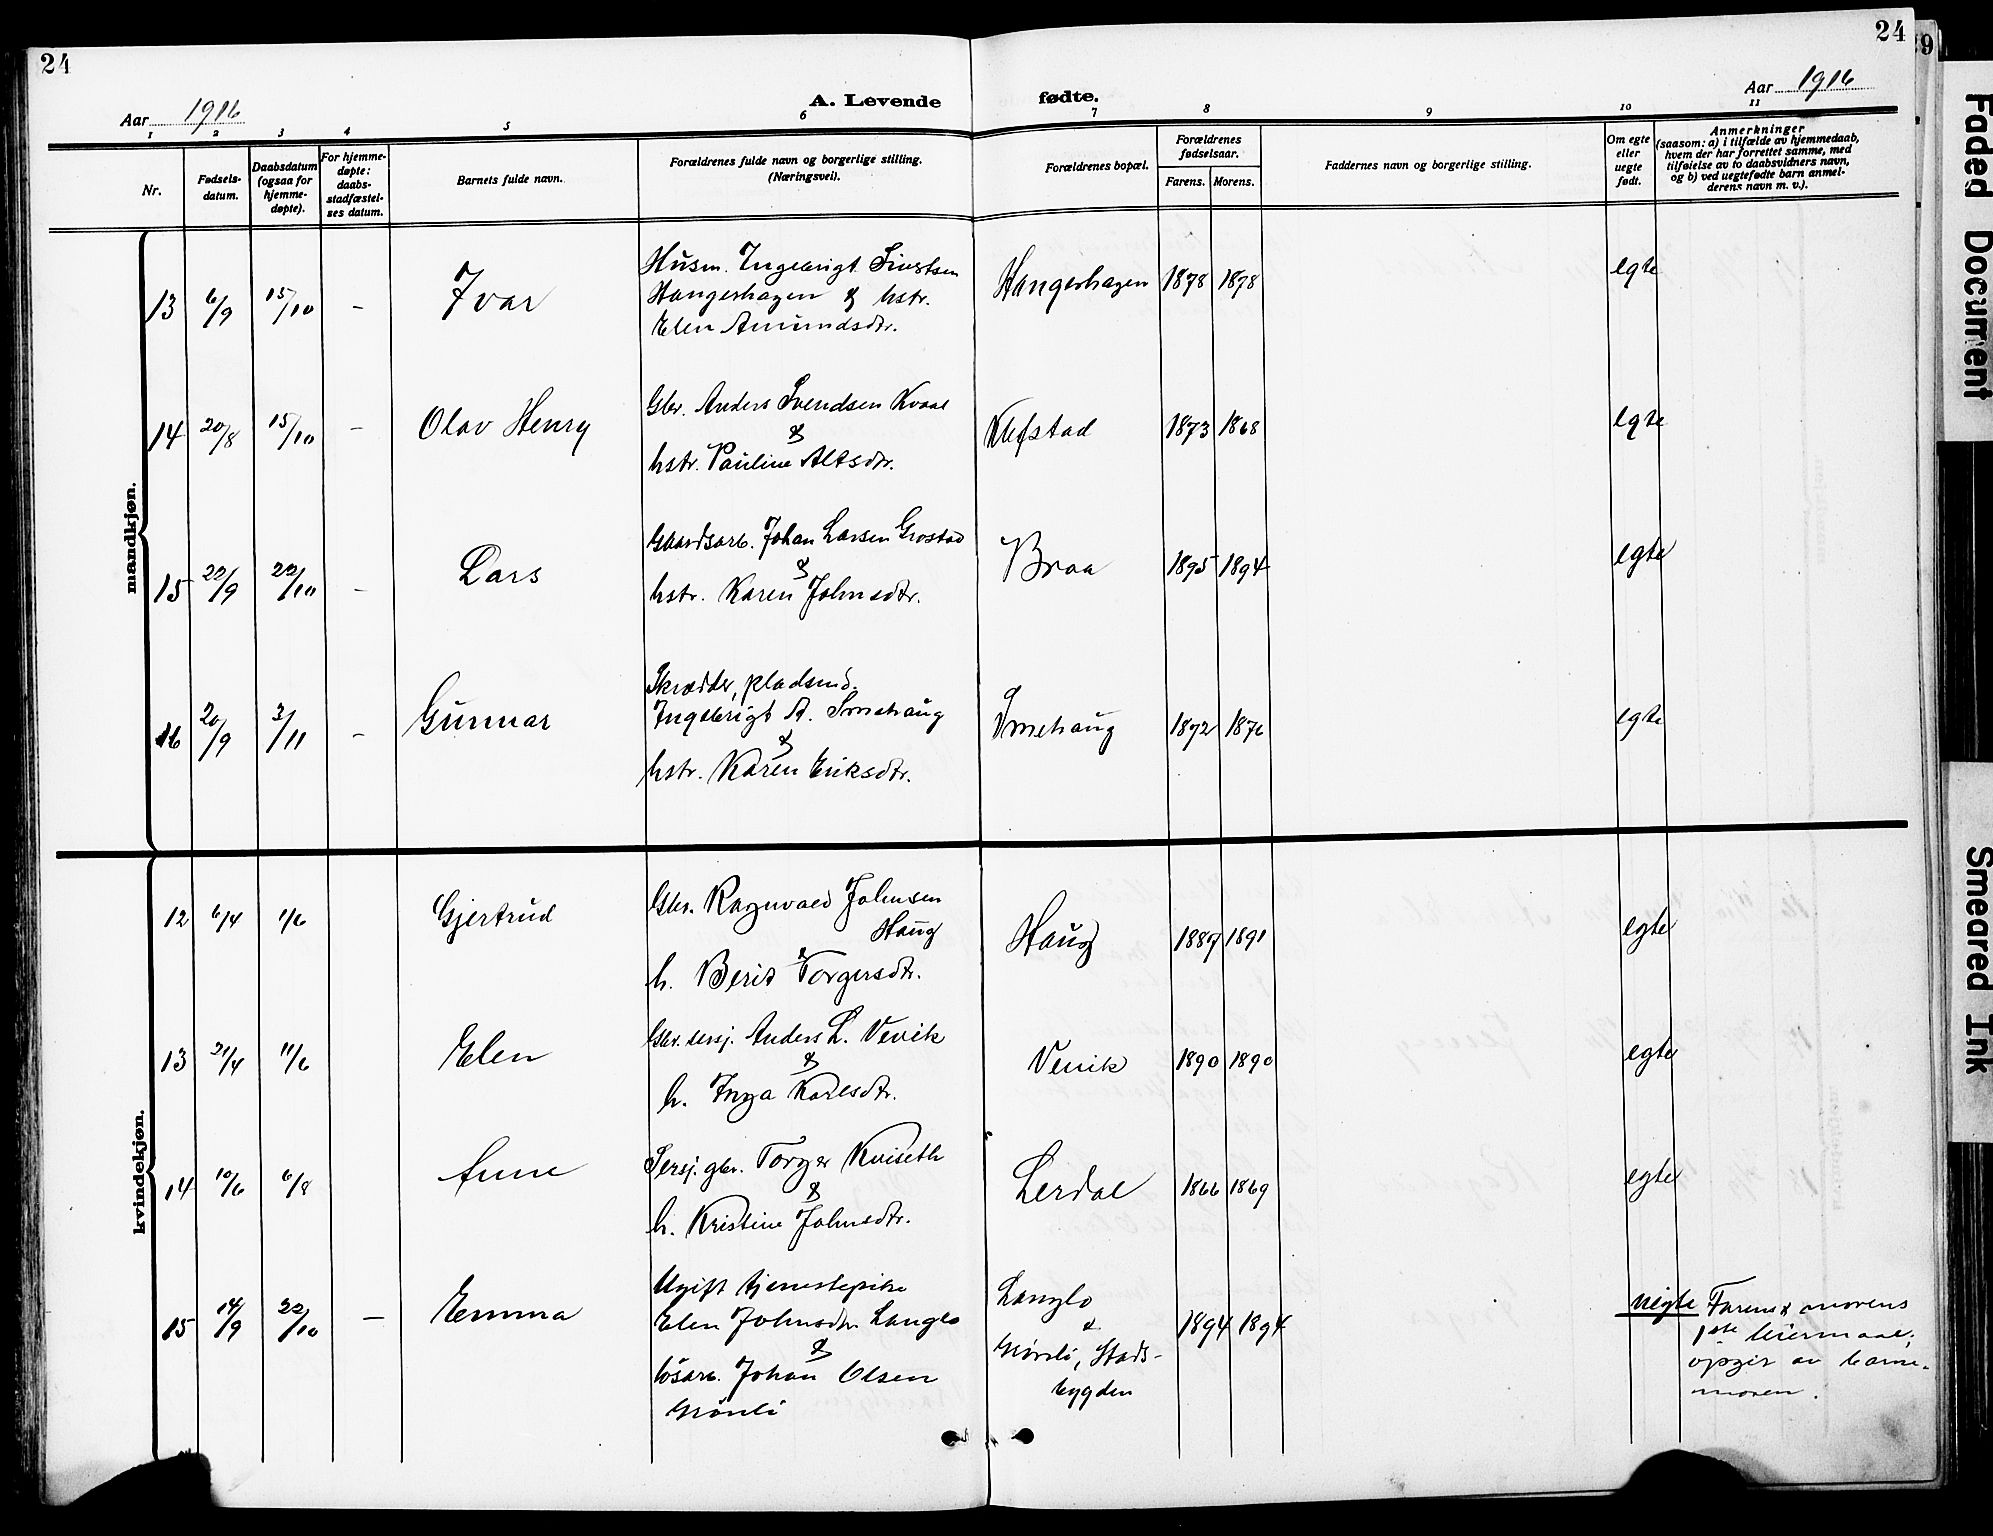 24
24
Aar 1916
A. Levende
fødte.
Aar 1916
1
2
3
4
5
6
7
8
9
10
11
Nr.
Fødsels-
datum.
Daabsdatum
(ogsaa for
hjemme-
døpte).
For hjemme-
døpte:
daabs-
stadfæstel-
ses datum.
Barnets fulde navn.
Forældrenes fulde navn og borgerlige stilling.
(Næringsvei).
Forældrenes bopæl.
Forældrenes
fødselsaar.
Farens.
Morens.
Faddernes navn og borgerlige stilling.
Om egte
eller
uegte
født.
Anmerkninger
(saasom: a) i tilfælde av hjemmedaab,
hvem der har forrettet samme, med
tilføielse av to daabsvidners navn,
og b) ved uegtefødte barn anmel-
derens navn m. v.).
mandkjøn.
13 6/9 15/10 - Ivar
Husm. Ingebrigt Sivertsen
Hangerhagen & hstr.
Elen Amundsdtr.
Hangerhagen 1878 1878 egte
14 20/8 15/10 - Olav Henry
Gbr. Anders Svendsen Kvaal
&
hstr. Pauline
stad 1873 1868 egte
15 22/9 22/10 - Lars
Gaardsarb. Johan Larsen Grostad
&
hstr. Karen Johnsdtr.
Braa 1895 1894 egte
16 20/9 3/11 - Gunnar
Skrædder, pladsmd.
Ingebrigt A. Smehaug
&
hstr. Karen Eriksdtr.
Smehaug 1872 1876 egte
kvindekjøn.
12 6/4 1/6 Gjertrud
Gbr. Ragnvald Johnsen
Haug
&
h. Berit Torgersdtr.
Haug 1887 1891 egte
13 21/4 11/6 Elen
Gbr. sersj. Anders L. Vevik
&
h. Inga Karlsdtr.
Vevik 1890 1890 egte
14 10/6 6/8 Anne
Sersj. gbr. Torger Kviseth
&
h. Kristine Johnsdtr.
Lerdal 1866 1869 egte
15 14/9 22/10 - Emma
Ugift tjenestepike
Elen Johnsdtr. Langlo
&
løsarb. Johan Olsen
Grønli
Langlo
&
Grønli, Stads-
bygden
1894 1894 uegte
Farens & morens
1ste leiermaal;
opgit av barne-
moren.
Faded Document
Smeared Ink